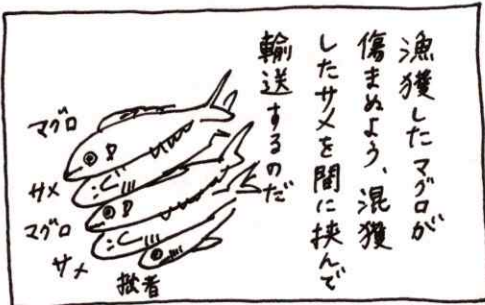 漁獲したマグロが
傷まぬよう、混獲
したサメを間に挟んで
輸送するのだ
マグロ
サメ
マグロ
サメ
拙者